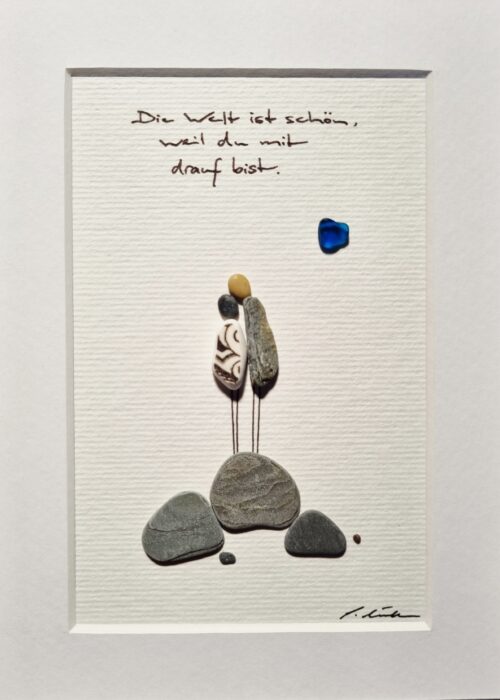 Die Welt ist schön,
weil du mit
drauf bist.